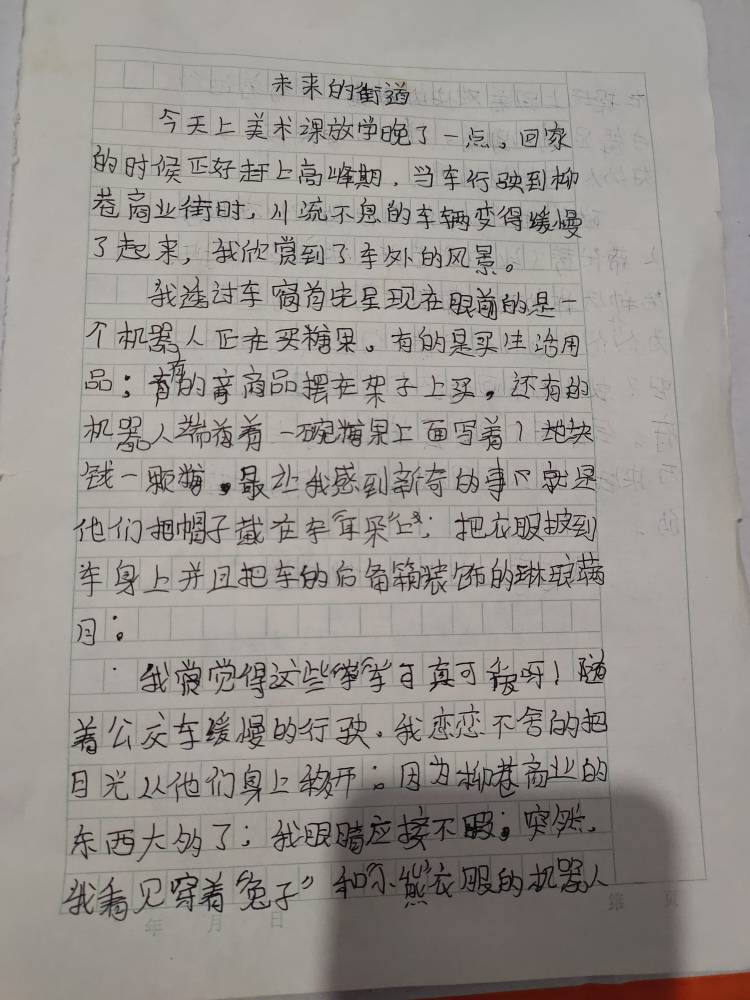 未来的街道
今天上美术课放学晚了一点，回家
的时候正好赶上高峰期，当车行驶到柳
巷商业街时，川流不息的车辆变得缓慢
了起来，我欣赏到了车外的风景。
我透过车窗首先呈现在眼前的是一
个机器人正在买糖果。有的是买生活用
品；有的商品摆在架子上买。还有的
机器人端着一碗糖果上面写着1块
钱一颗糖。最让我感到新奇的事就是
他们把帽子戴在车上；把衣服披到
车身上并且把车的后备箱装饰的琳琅满
目。
我觉得这些车真可爱呀！随
着公交车缓慢的行驶。我恋恋不舍的把
目光从他们身上移开。因为柳巷商业的
东西太多了；我眼睛应接不暇；突然，
我看见穿着“兔子”和“小熊”衣服的机器人
年 月 日 第 页